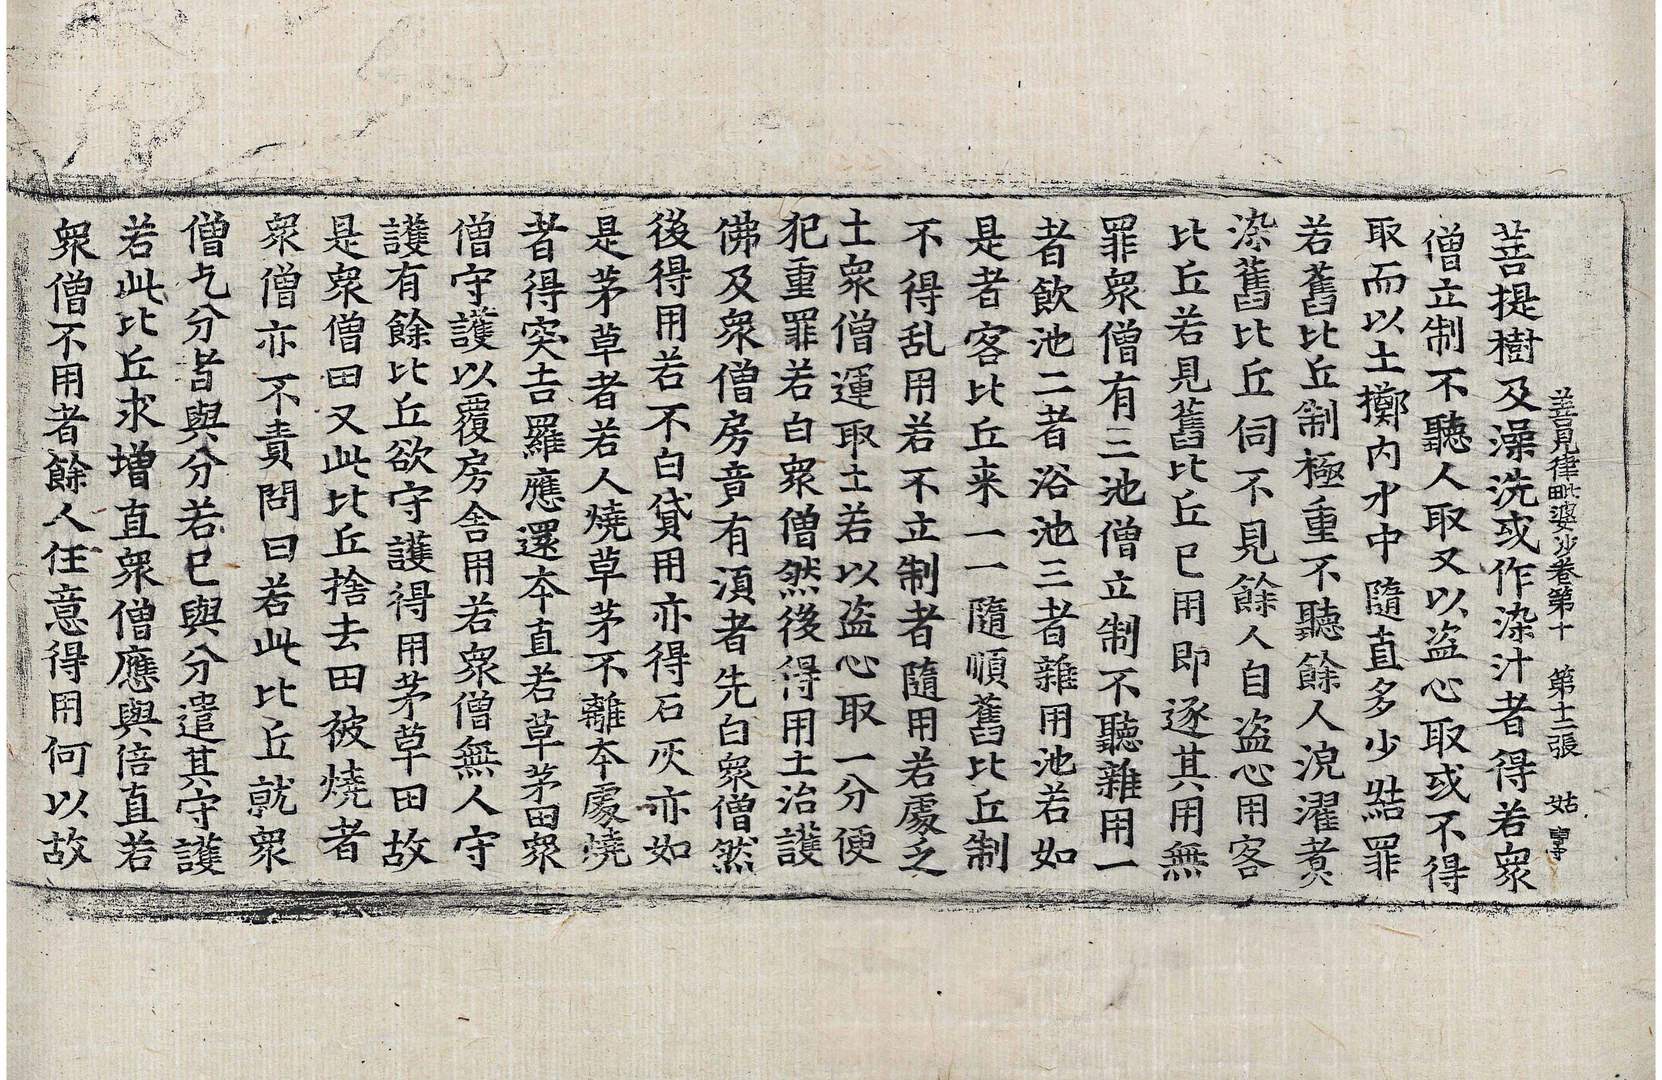 善見律毗婆沙卷第十 第十二張 姑
菩提樹及澡洗或作染汁者得若衆
僧立制不聽人取又以盗心取或不得
取而以土擲内水中隨直多少結罪
若舊比丘制極重不聽餘人浣濯煑
染舊比丘伺不見餘人自盗心用客
比丘若見舊比丘已用即逐其用無
罪衆僧有三池僧立制不聽雜用一
者飲池二者浴池三者雜用池若如
是者客比丘来一一隨順舊比丘制
不得乱用若不立制者隨用若處乏
土衆僧運取土若以盗心取一分便
犯重罪若白衆僧然後得用土治護
佛及衆僧房竟有湏者先白衆僧然
後得用若不白貸用亦得石灰亦如
是茅草者若人燒草茅不離本處燒
者得突吉羅應還本直若草茅田衆
僧守護以覆房舍用若衆僧無人守
護有餘比丘欲守護得用茅草田故
是衆僧田又此比丘捨去田被燒者
衆僧亦不責問曰若此比丘就衆
僧乞分皆與分若已與分遣其守護
若此比丘求增直衆僧應與倍直若
衆僧不用者餘人任意得用何以故